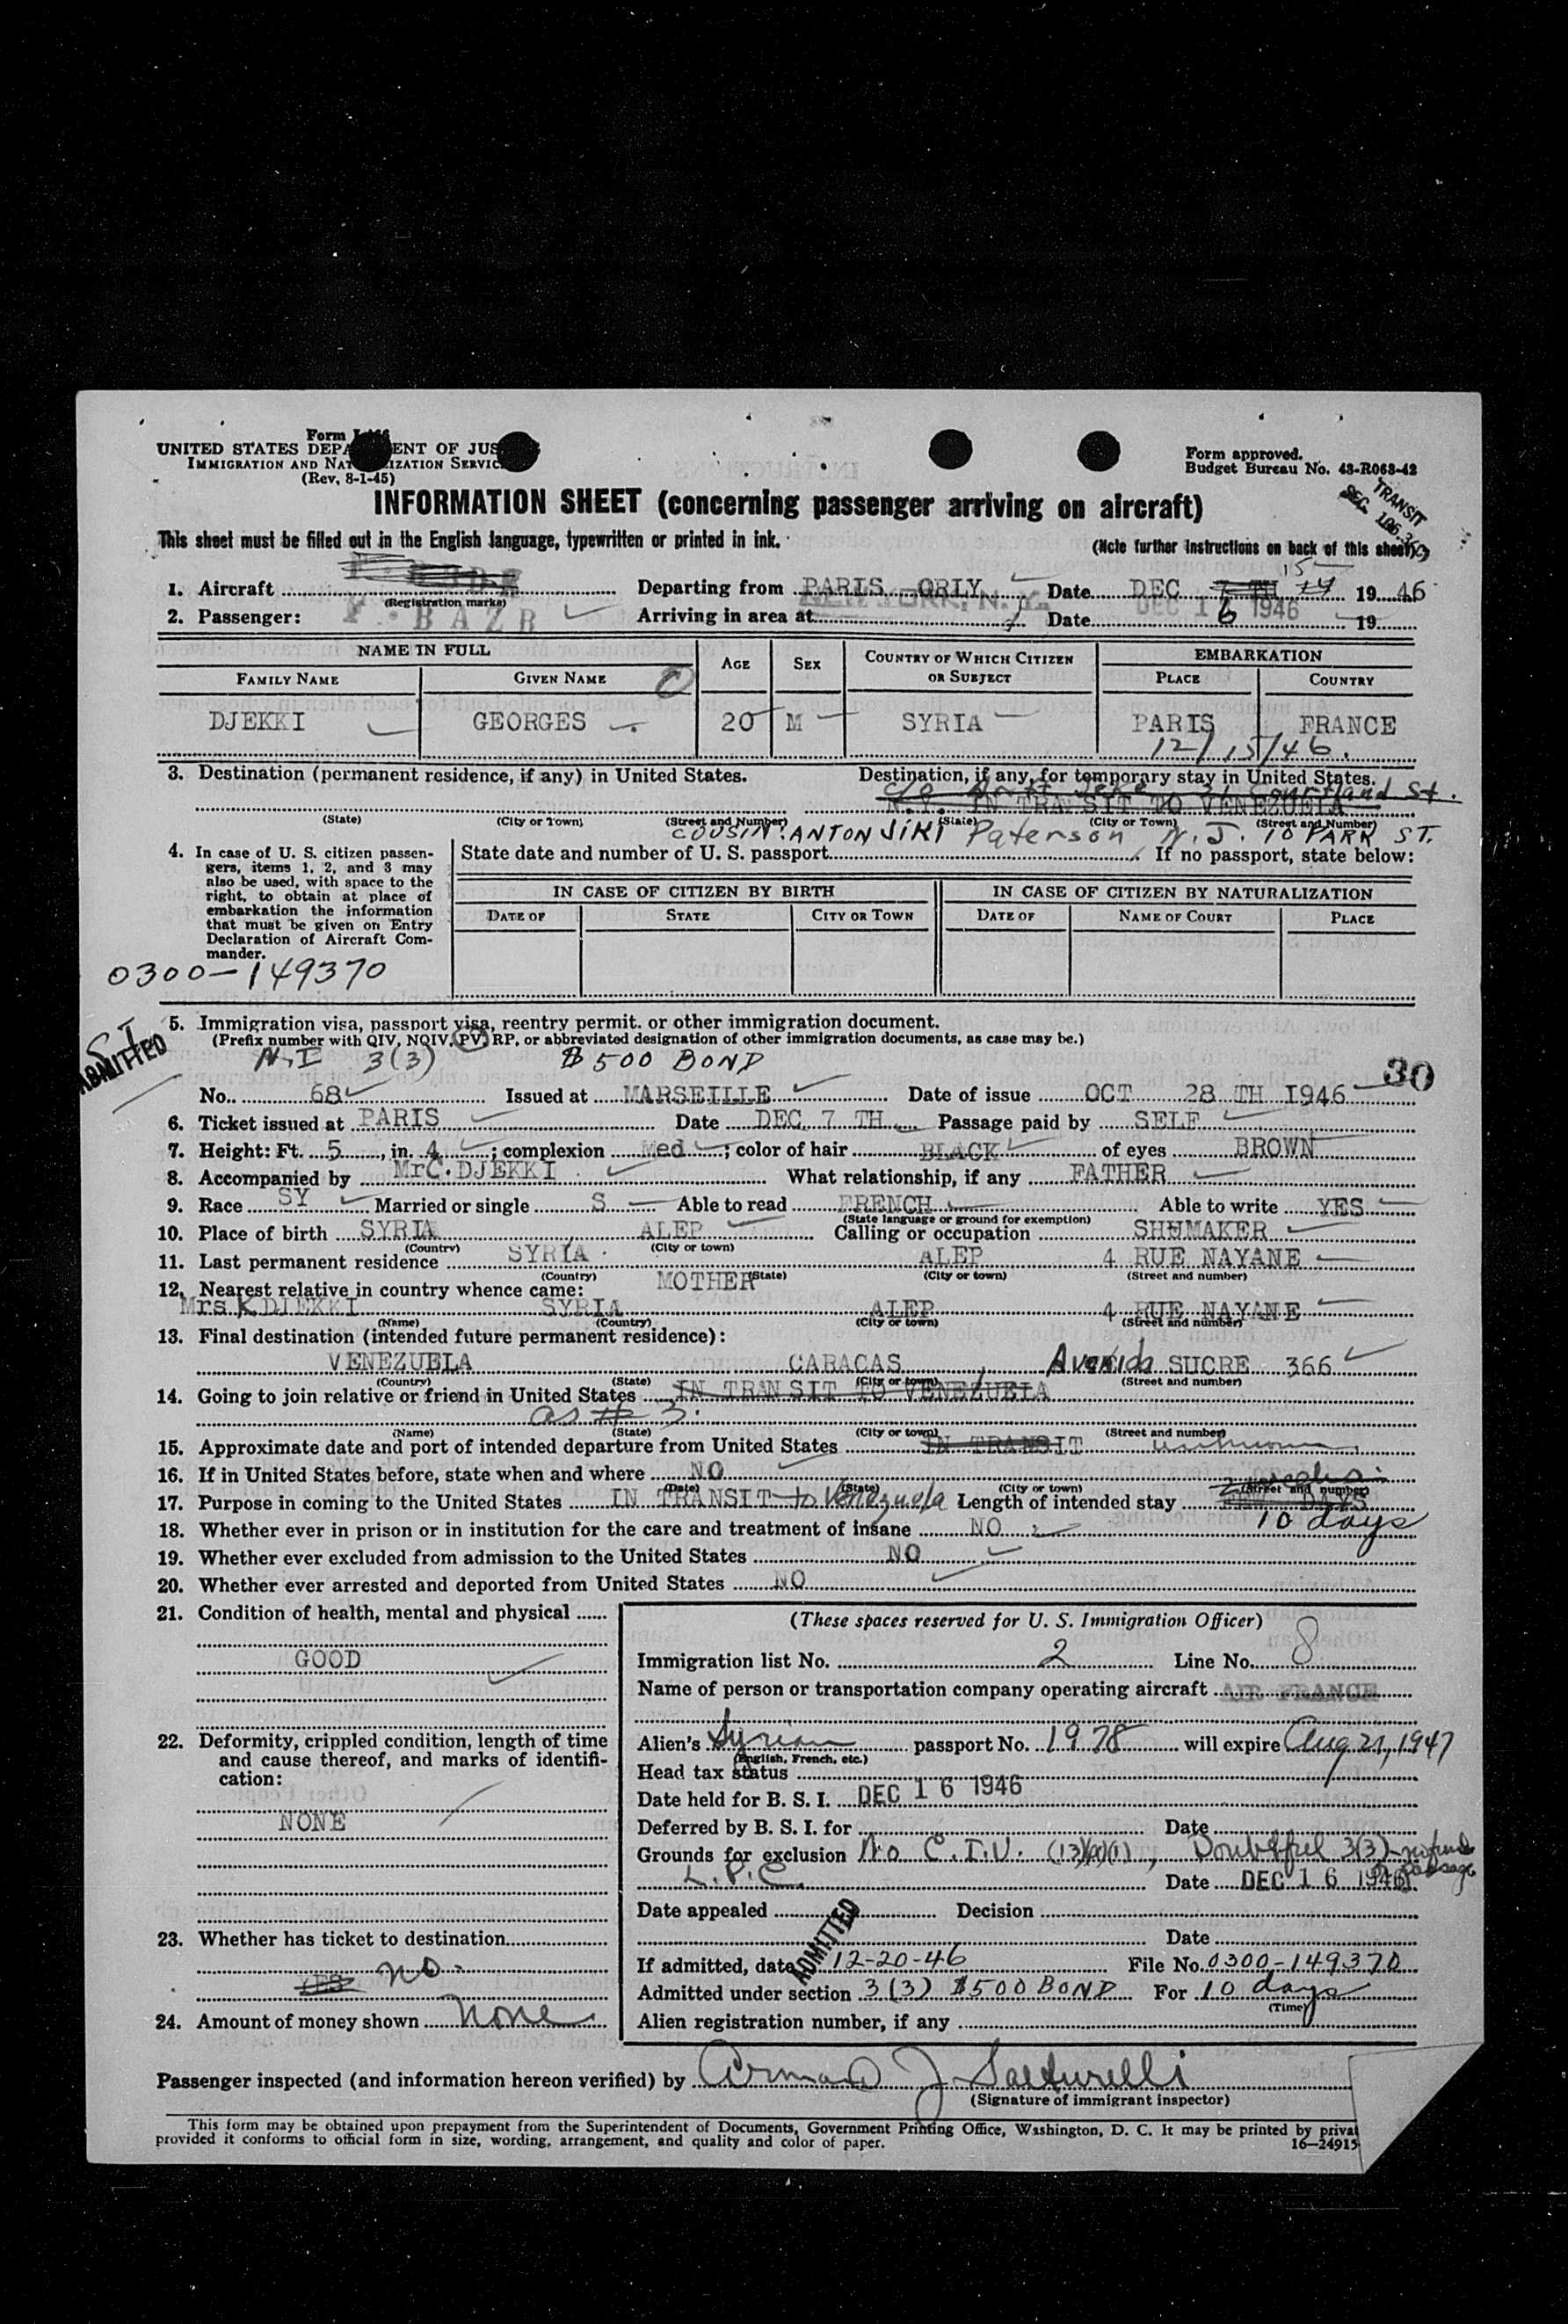 Form I-466
UNITED STATES DEPARTMENT OF JUSTICE
IMMIGRATION AND NATURALIZATION SERVICE
(Rev. 8-1-45)
Form approved.
Budget Bureau No. 43-R063-42
TRANSIT
SEC.
INFORMATION SHEET (concerning passenger arriving on aircraft)
This sheet must be filled out in the English language, typewritten or printed in ink.
(Note further instructions on back of this sheet)
1. Aircraft Departing from PARIS ORLY Date DEC 15 1946
(Registration marks)
2. Passenger: F. BAZB Arriving in area at NEW YORK, N. Y. Date DEC 16 1946 19
NAME IN FULL AGE SEX COUNTRY OF WHICH CITIZEN OR SUBJECT EMBARKATION
FAMILY NAME GIVEN NAME PLACE COUNTRY
DJEKKI GEORGES 20 M SYRIA PARIS FRANCE
12/15/46.
3. Destination (permanent residence, if any) in United States. Destination, if any, for temporary stay in United States.
Courtland St.
N.Y. IN TRANSIT TO VENEZUELA
(State) (City or Town) (Street and Number) (State) (City or Town) (Street and Number)
COUSIN: ANTON JIKI Paterson N.J. 10 PARK ST.
4. In case of U. S. citizen passengers, items 1, 2, and 3 may also be used, with space to the right, to obtain at place of embarkation the information that must be given on Entry Declaration of Aircraft Commander.
State date and number of U. S. passport If no passport, state below:
IN CASE OF CITIZEN BY BIRTH IN CASE OF CITIZEN BY NATURALIZATION
DATE OF STATE CITY OR TOWN DATE OF NAME OF COURT PLACE
0300-149370
ADMITTED
5. Immigration visa, passport visa, reentry permit, or other immigration document.
(Prefix number with QIV, NQIV, PV, RP, or abbreviated designation of other immigration documents, as case may be.)
N.I 3(3) $500 BOND
30
No. 68 Issued at MARSEILLE Date of issue OCT 28 TH 1946
6. Ticket issued at PARIS Date DEC 7 TH Passage paid by SELF
7. Height: Ft. 5, in. 4; complexion Med; color of hair BLACK of eyes BROWN
8. Accompanied by Mr C. DJEKKI What relationship, if any FATHER
9. Race SY Married or single S Able to read FRENCH Able to write YES
(State language or ground for exemption)
10. Place of birth SYRIA ALEP Calling or occupation SHUMAKER
(Country) (City or town)
11. Last permanent residence SYRIA ALEP 4 RUE NAYANE
(Country) (State) (City or town) (Street and number)
12. Nearest relative in country whence came: MOTHER
Mrs K DJEKKI SYRIA ALEP 4 RUE NAYANE
(Name) (Country) (City or town) (Street and number)
13. Final destination (intended future permanent residence):
VENEZUELA CARACAS Avenida SUCRE 366
(Country) (State) (City or town) (Street and number)
14. Going to join relative or friend in United States IN TRANSIT TO VENEZUELA
as # 3.
(Name) (State) (City or town) (Street and number)
15. Approximate date and port of intended departure from United States IN TRANSIT unknown
16. If in United States before, state when and where NO
(Date) (State) (City or town) (Street and number)
2 weeks
17. Purpose in coming to the United States IN TRANSIT to Venezuela Length of intended stay DAYS
10 days
18. Whether ever in prison or in institution for the care and treatment of insane NO
19. Whether ever excluded from admission to the United States NO
20. Whether ever arrested and deported from United States NO
21. Condition of health, mental and physical
GOOD
22. Deformity, crippled condition, length of time and cause thereof, and marks of identification:
NONE
23. Whether has ticket to destination
YES no.
24. Amount of money shown none
(These spaces reserved for U. S. Immigration Officer)
Immigration list No. 2 Line No. 8
Name of person or transportation company operating aircraft AIR FRANCE
Alien's Syrian passport No. 1978 will expire Aug 21, 1947
(English, French, etc.)
Head tax status
Date held for B. S. I. DEC 16 1946
Deferred by B. S. I. for Date
Grounds for exclusion No C.I.V. (13)(a)(1), Doubtful 3(3) - no funds or passage
L.P.C. Date DEC 16 1946
Date appealed Decision
Date
If admitted, date ADMITTED 12-20-46 File No. 0300-149370
Admitted under section 3(3) $500 BOND For 10 days
(Time)
Alien registration number, if any
Passenger inspected (and information hereon verified) by Armand J. Salturelli
(Signature of immigrant inspector)
This form may be obtained upon prepayment from the Superintendent of Documents, Government Printing Office, Washington, D. C. It may be printed by privat
provided it conforms to official form in size, wording, arrangement, and quality and color of paper. 16—24915